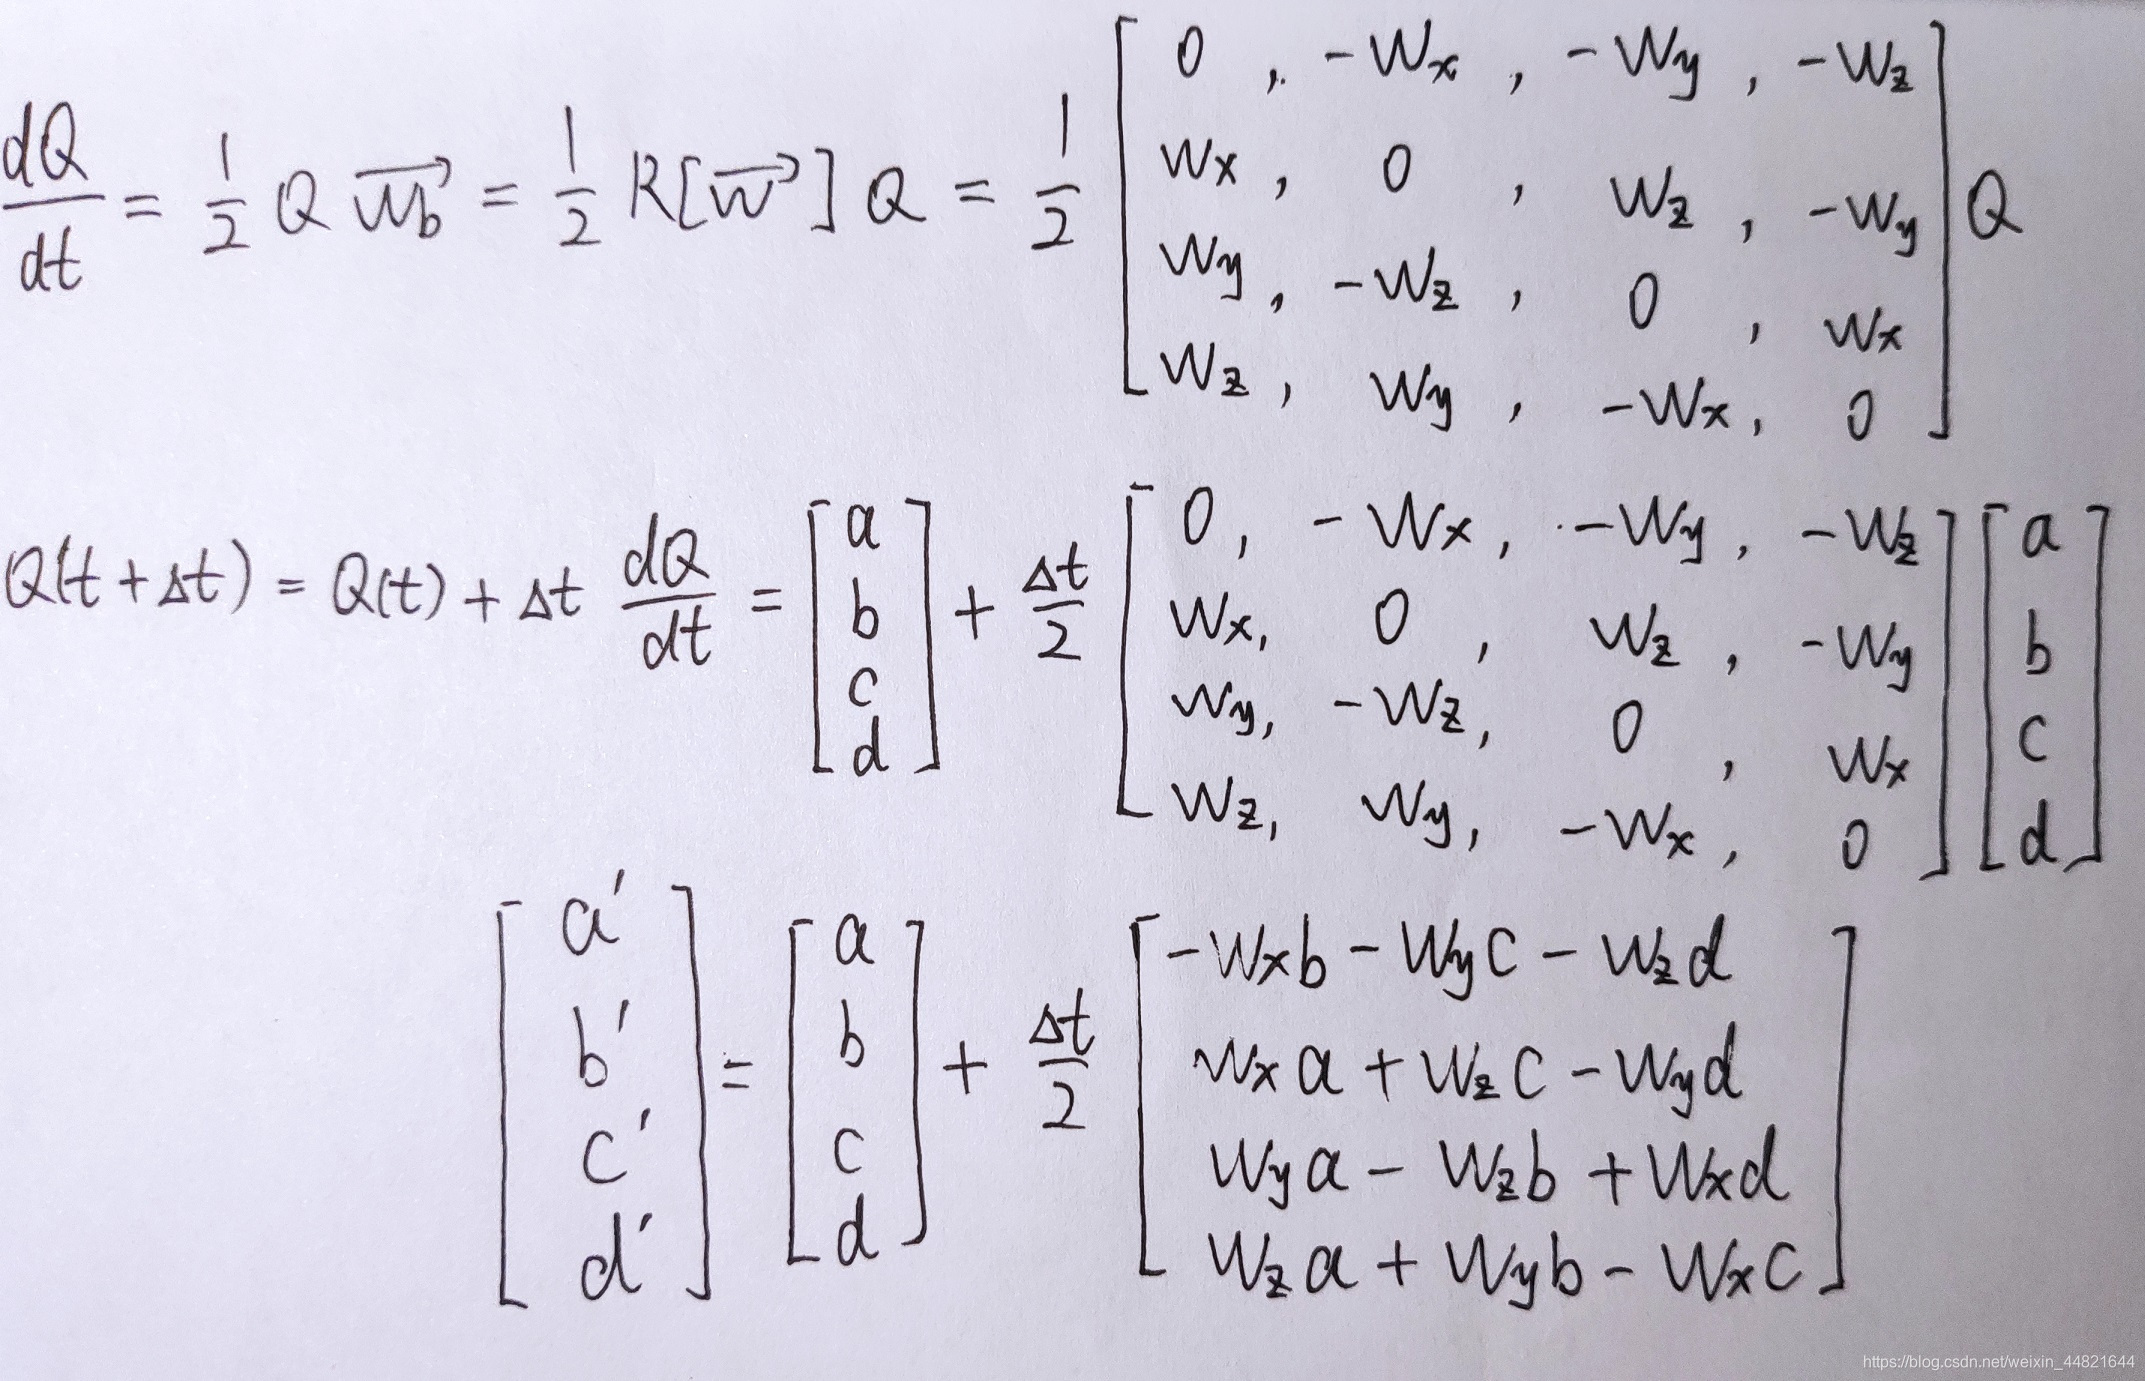 dQ/dt = 1/2 Q \vec{W_b} = 1/2 R[\vec{W}] Q = 1/2 [0, -Wx, -Wy, -Wz; Wx, 0, Wz, -Wy; Wy, -Wz, 0, Wx; Wz, Wy, -Wx, 0] Q
Q(t+Δt) = Q(t) + Δt dQ/dt = [a; b; c; d] + Δt/2 [0, -Wx, -Wy, -Wz; Wx, 0, Wz, -Wy; Wy, -Wz, 0, Wx; Wz, Wy, -Wx, 0] [a; b; c; d]
[a'; b'; c'; d'] = [a; b; c; d] + Δt/2 [-Wxb - Wyc - Wzd; Wxa + Wzc - Wyd; Wya - Wzb + Wxd; Wza + Wyb - Wxc]
https://blog.csdn.net/weixin_44821644